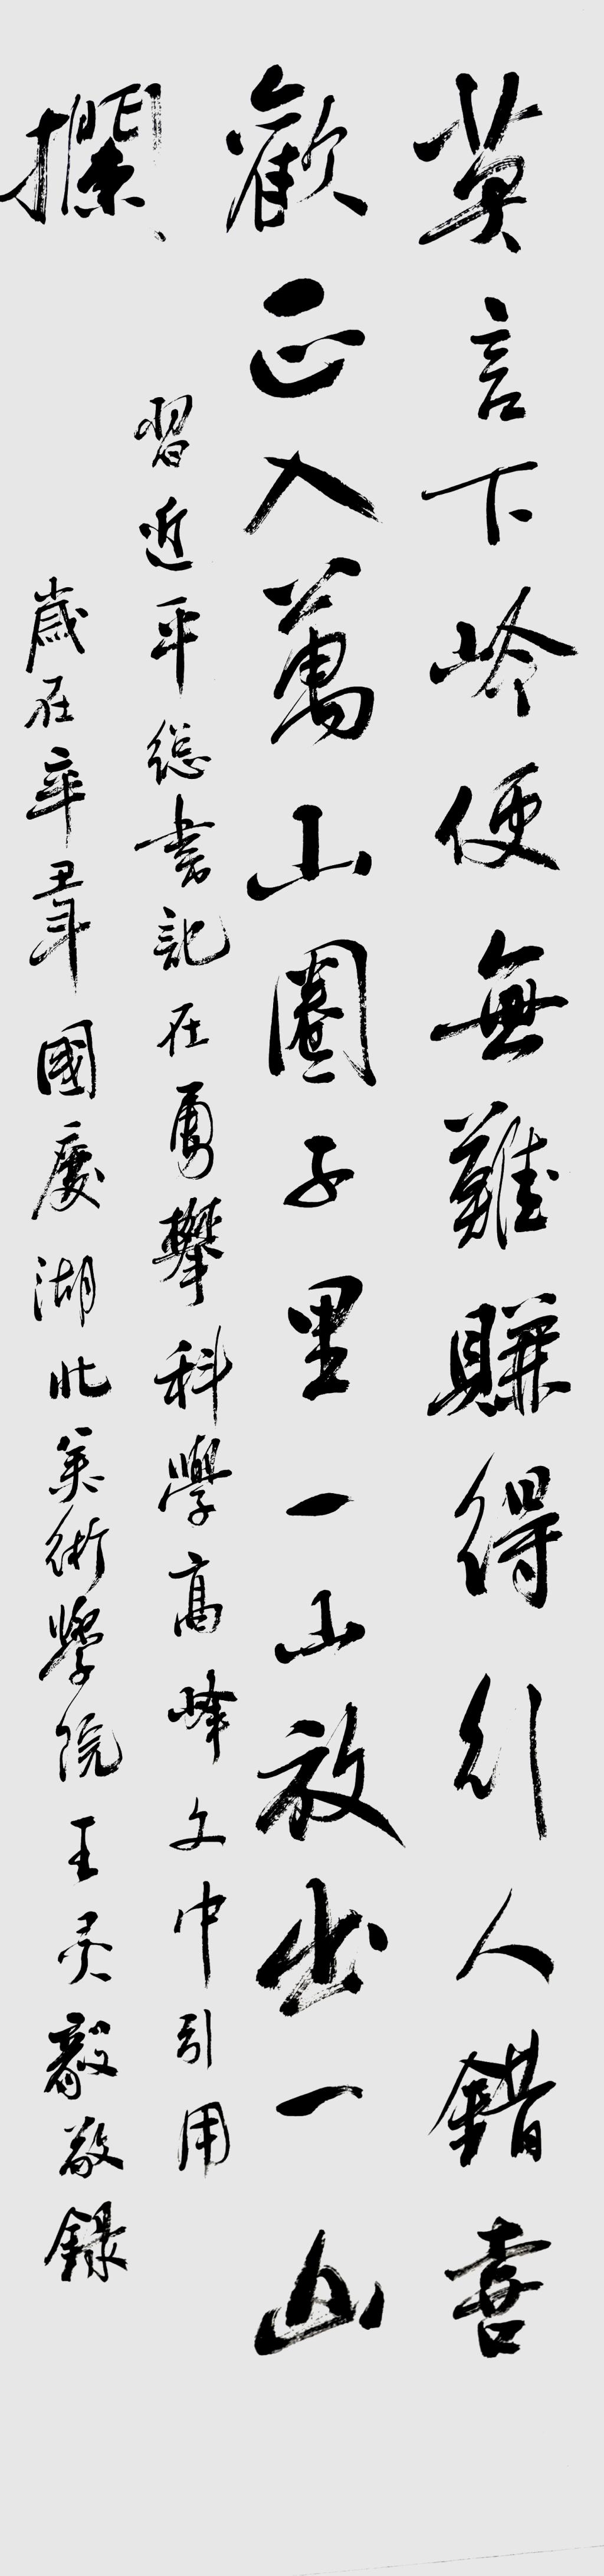 莫言下岭便無難賺得行人錯喜
歡正入萬山圈子里一山放出一山
攔
習近平總書記在勇攀科學高峰文中引用
歲在辛丑年國慶湖北美術學院王灵毅敬錄